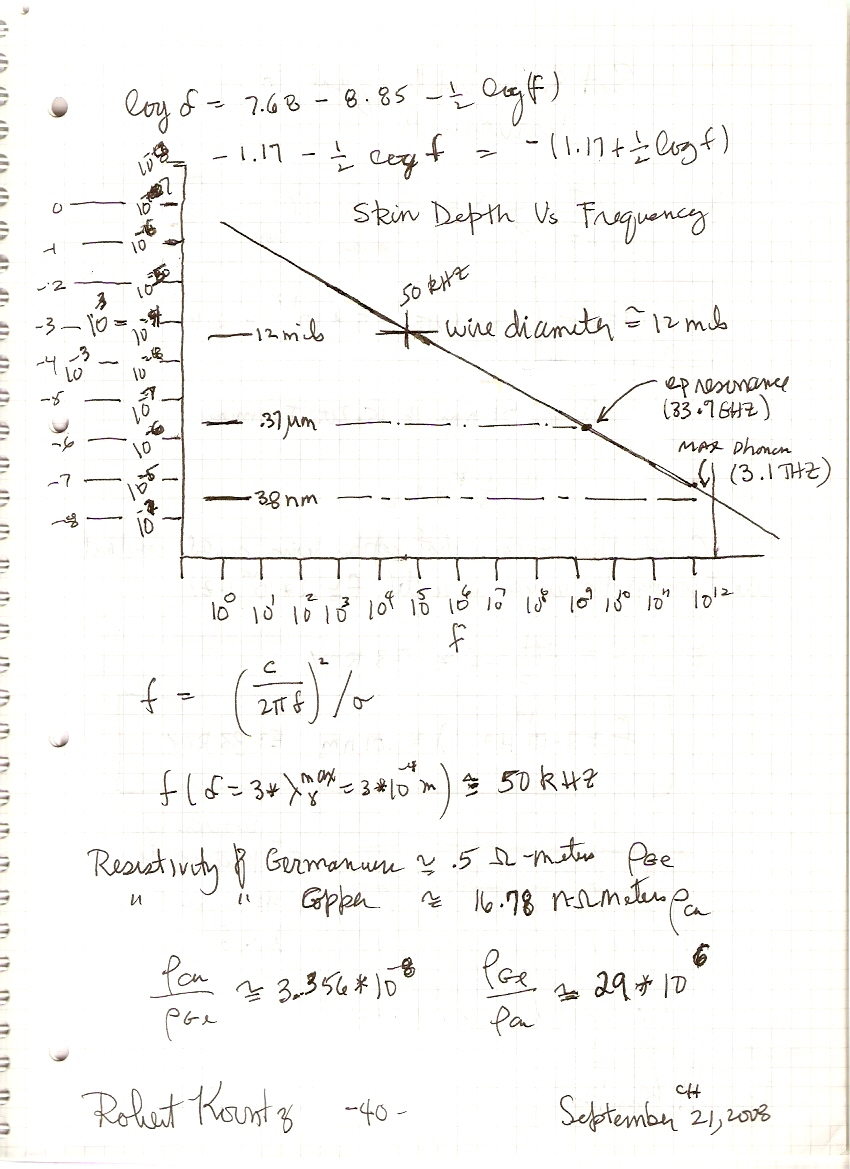 log δ = 7.68 - 8.85 - 1/2 log(f)
-1.17 - 1/2 log f = -(1.17 + 1/2 log f)
Skin Depth Vs Frequency
0
-1
-2
-3 10³ =
-4 10⁻³
-5
-6
-7
-8
50 kHz
12 mils
wire diameter ≅ 12 mils
.37μm
ep resonance
(33.9 GHZ)
MAX Phonon
(3.1 THZ)
38 nm
10⁰ 10¹ 10² 10³ 10⁴ 10⁵ 10⁶ 10⁷ 10⁸ 10⁹ 10¹⁰ 10¹¹ 10¹²
f
f = (c / 2π δ)² / σ
f (δ = 3* λ max γ = 3*10⁻⁴ m) ≅ 50 kHZ
Resistivity of Germanium ≅ .5 Ω-meters ρGe
" " Copper ≅ 16.78 n-Ω meters ρCu
ρCu / ρGe ≅ 3.356*10⁻⁸ ρGe / ρCu ≅ 29*10⁶
Robert Kountz -40- September 21, 2008